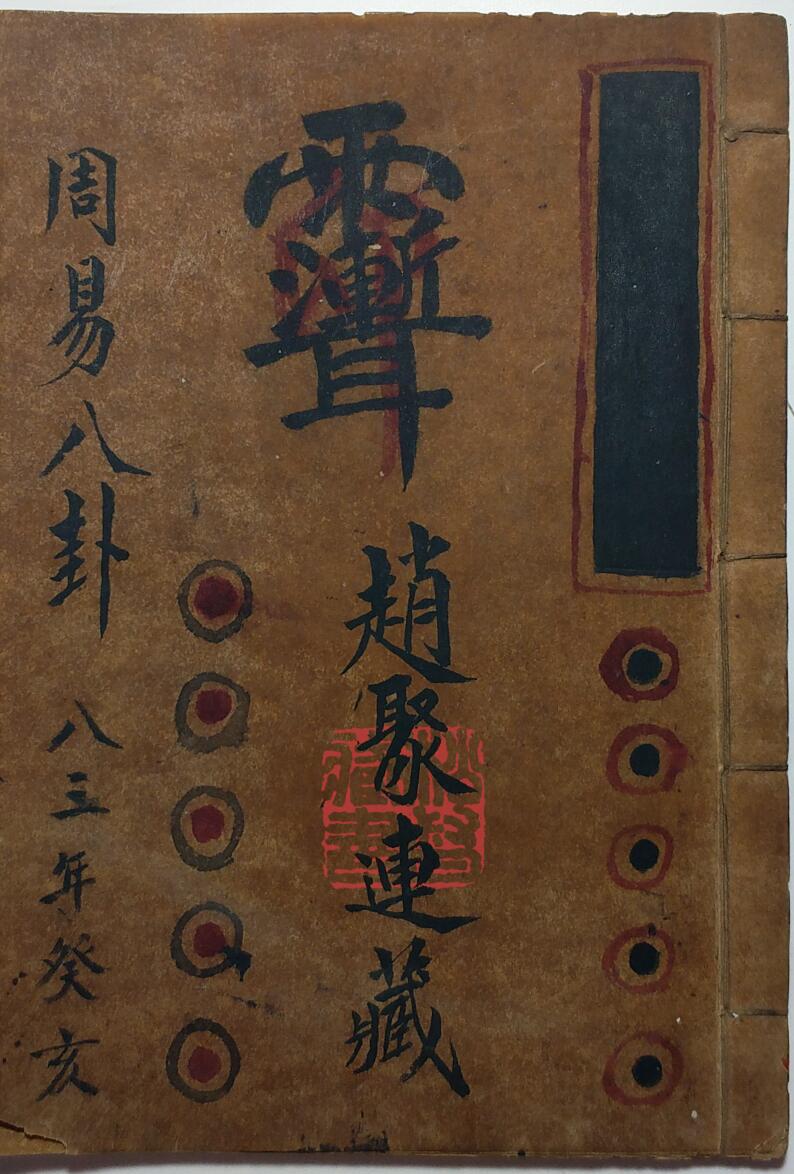 趙聚連藏
周易八卦
八三年癸亥